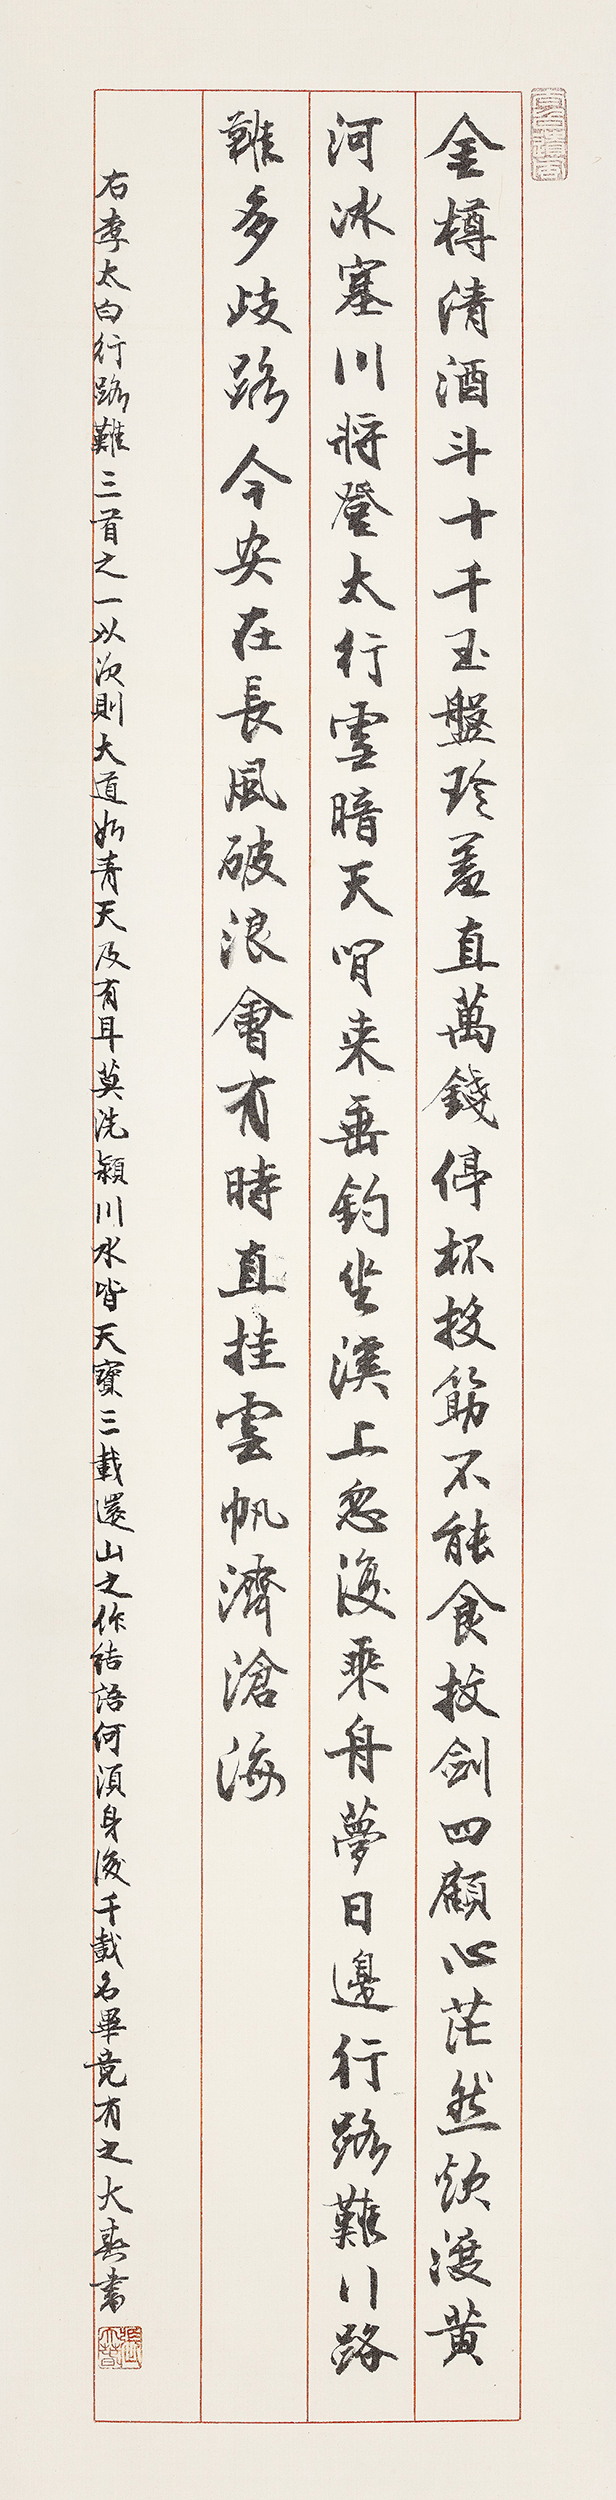 金樽清酒斗十千玉盤珍羞直萬錢停杯投筯不能食拔劍四顧心茫然欲渡黃
河冰塞川將登太行雪暗天閒来垂釣坐溪上忽復乘舟夢日邊行路難行路
難多歧路今安在長風破浪會有時直挂雲帆濟滄海
右李太白行路難三首之一以次則大道如青天及有耳莫洗潁川水皆天寶三載還山之作結語何須身後千載名畢竟有之大春書